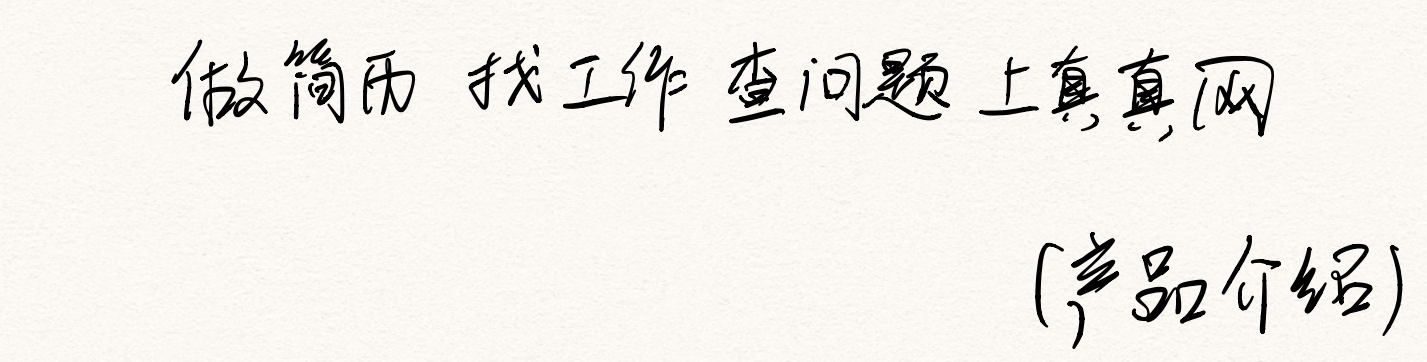 做简历 找工作 查问题 上真真网
(产品介绍)